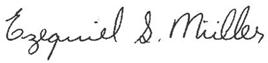 Ezequiel S. Müller